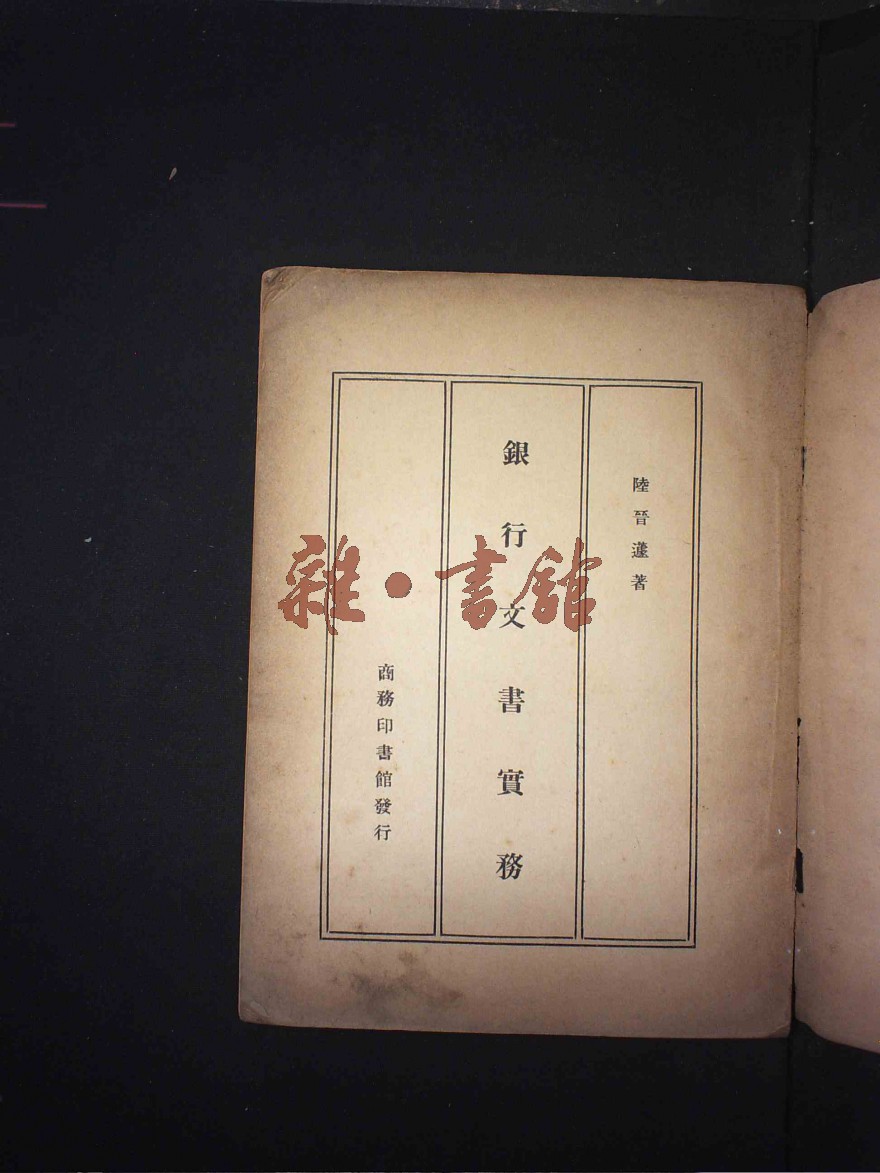 陸晉蘧著
銀行文書實務
商務印書館發行
雜·書館